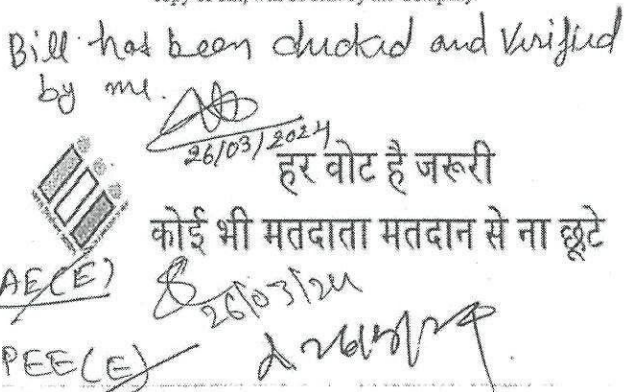 Bill has been checked and Verified
by me.
26/03/2024
हर वोट है जरूरी
कोई भी मतदाता मतदान से ना छूटे
AE(E)
26/03/24
PEE(E)